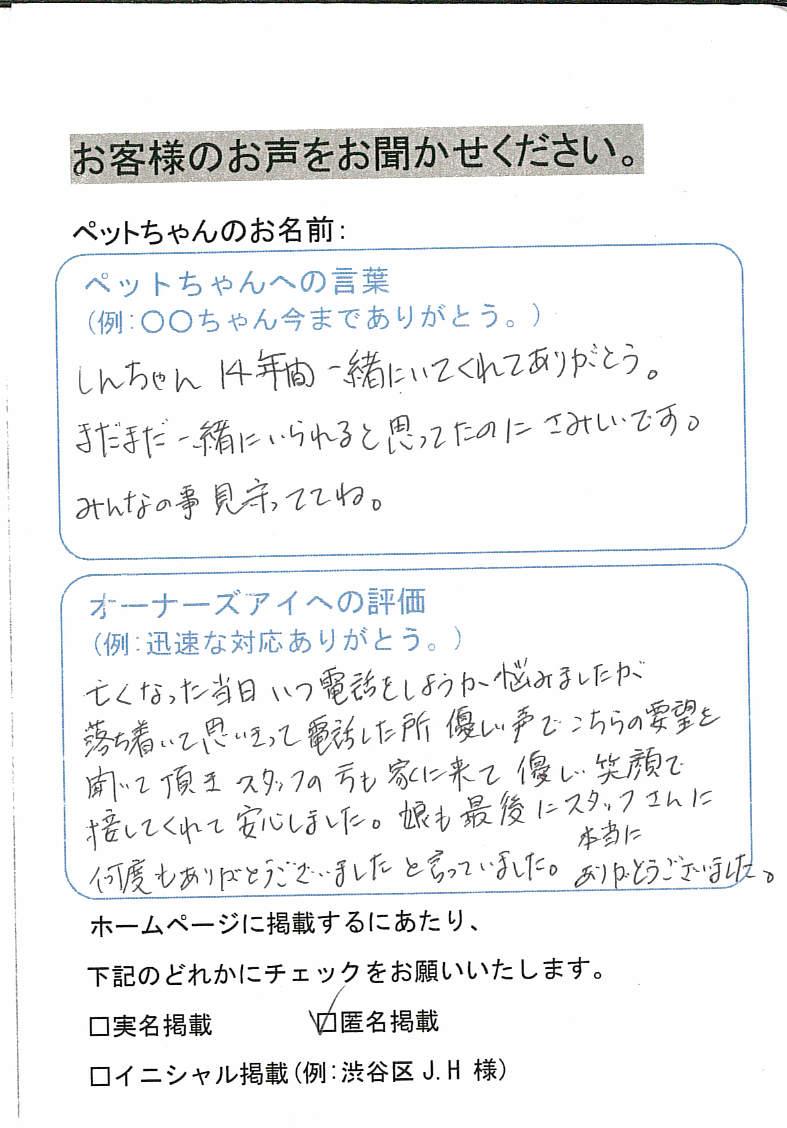 お客様のお声をお聞かせください。
ペットちゃんのお名前:
ペットちゃんへの言葉
(例:〇〇ちゃん今までありがとう。)
しんちゃん 14年間一緒にいてくれてありがとう。
まだまだ一緒にいられると思ってたのに さみしいです。
みんなの事見守っててね。
オーナーズアイへの評価
(例:迅速な対応ありがとう。)
亡くなった当日 いつ電話をしようか悩みましたが
落ち着いて思いきって電話した所 優しい声でこちらの要望を
聞いて頂き スタッフの方も家に来て 優しい笑顔で
接してくれて安心しました。娘も最後にスタッフさんに
何度もありがとうございましたと言っていました。 本当に
ありがとうございました。
ホームページに掲載するにあたり、
下記のどれかにチェックをお願いいたします。
□実名掲載 ☑匿名掲載
□イニシャル掲載(例:渋谷区 J.H 様)